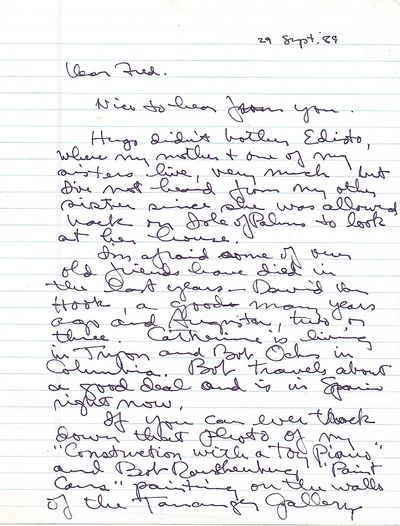 29 Sept, '89
Dear Fred.
Nice to hear from you.
Hugo didn't bother Edisto,
where my mother + one of my
sisters live, very much, but
I've not heard from my other
sister since she was allowed
back on Isle of Palms to look
at her house.
I'm afraid some of our
old friends have died in
the last years – David Van
Hook, a good many years
ago and Augusta, two or
three. Catherine is living
in Tryon and Bob Ochs in
Columbia. Bob travels about
a good deal and is in Spain
right now.
If you can ever track
down that photo of my
"Construction with a Toy Piano"
and Bob Rauschenberg "Paint
Cans" painting on the walls
of the Tanager Gallery